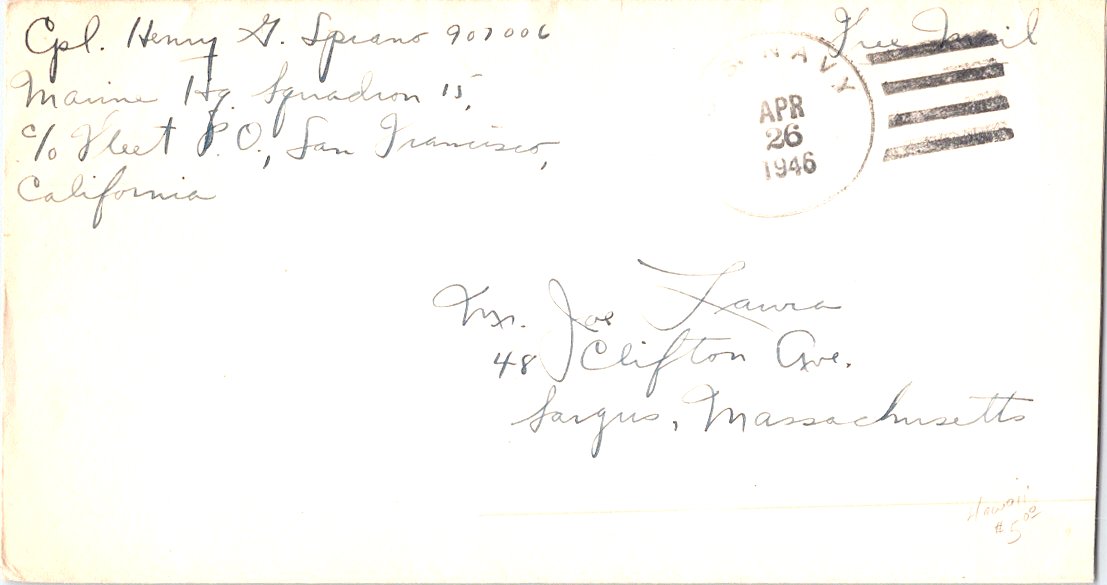 Cpl. Henry G. Sprano 907006
Free Mail
Marine Hq. Squadron 15,
c/o Fleet P.O., San Francisco,
California
NAVY
APR
26
1946
Mr. Joe Laura
48 Clifton Ave.
Sargus, Massachusetts
Hawaii
$5.00